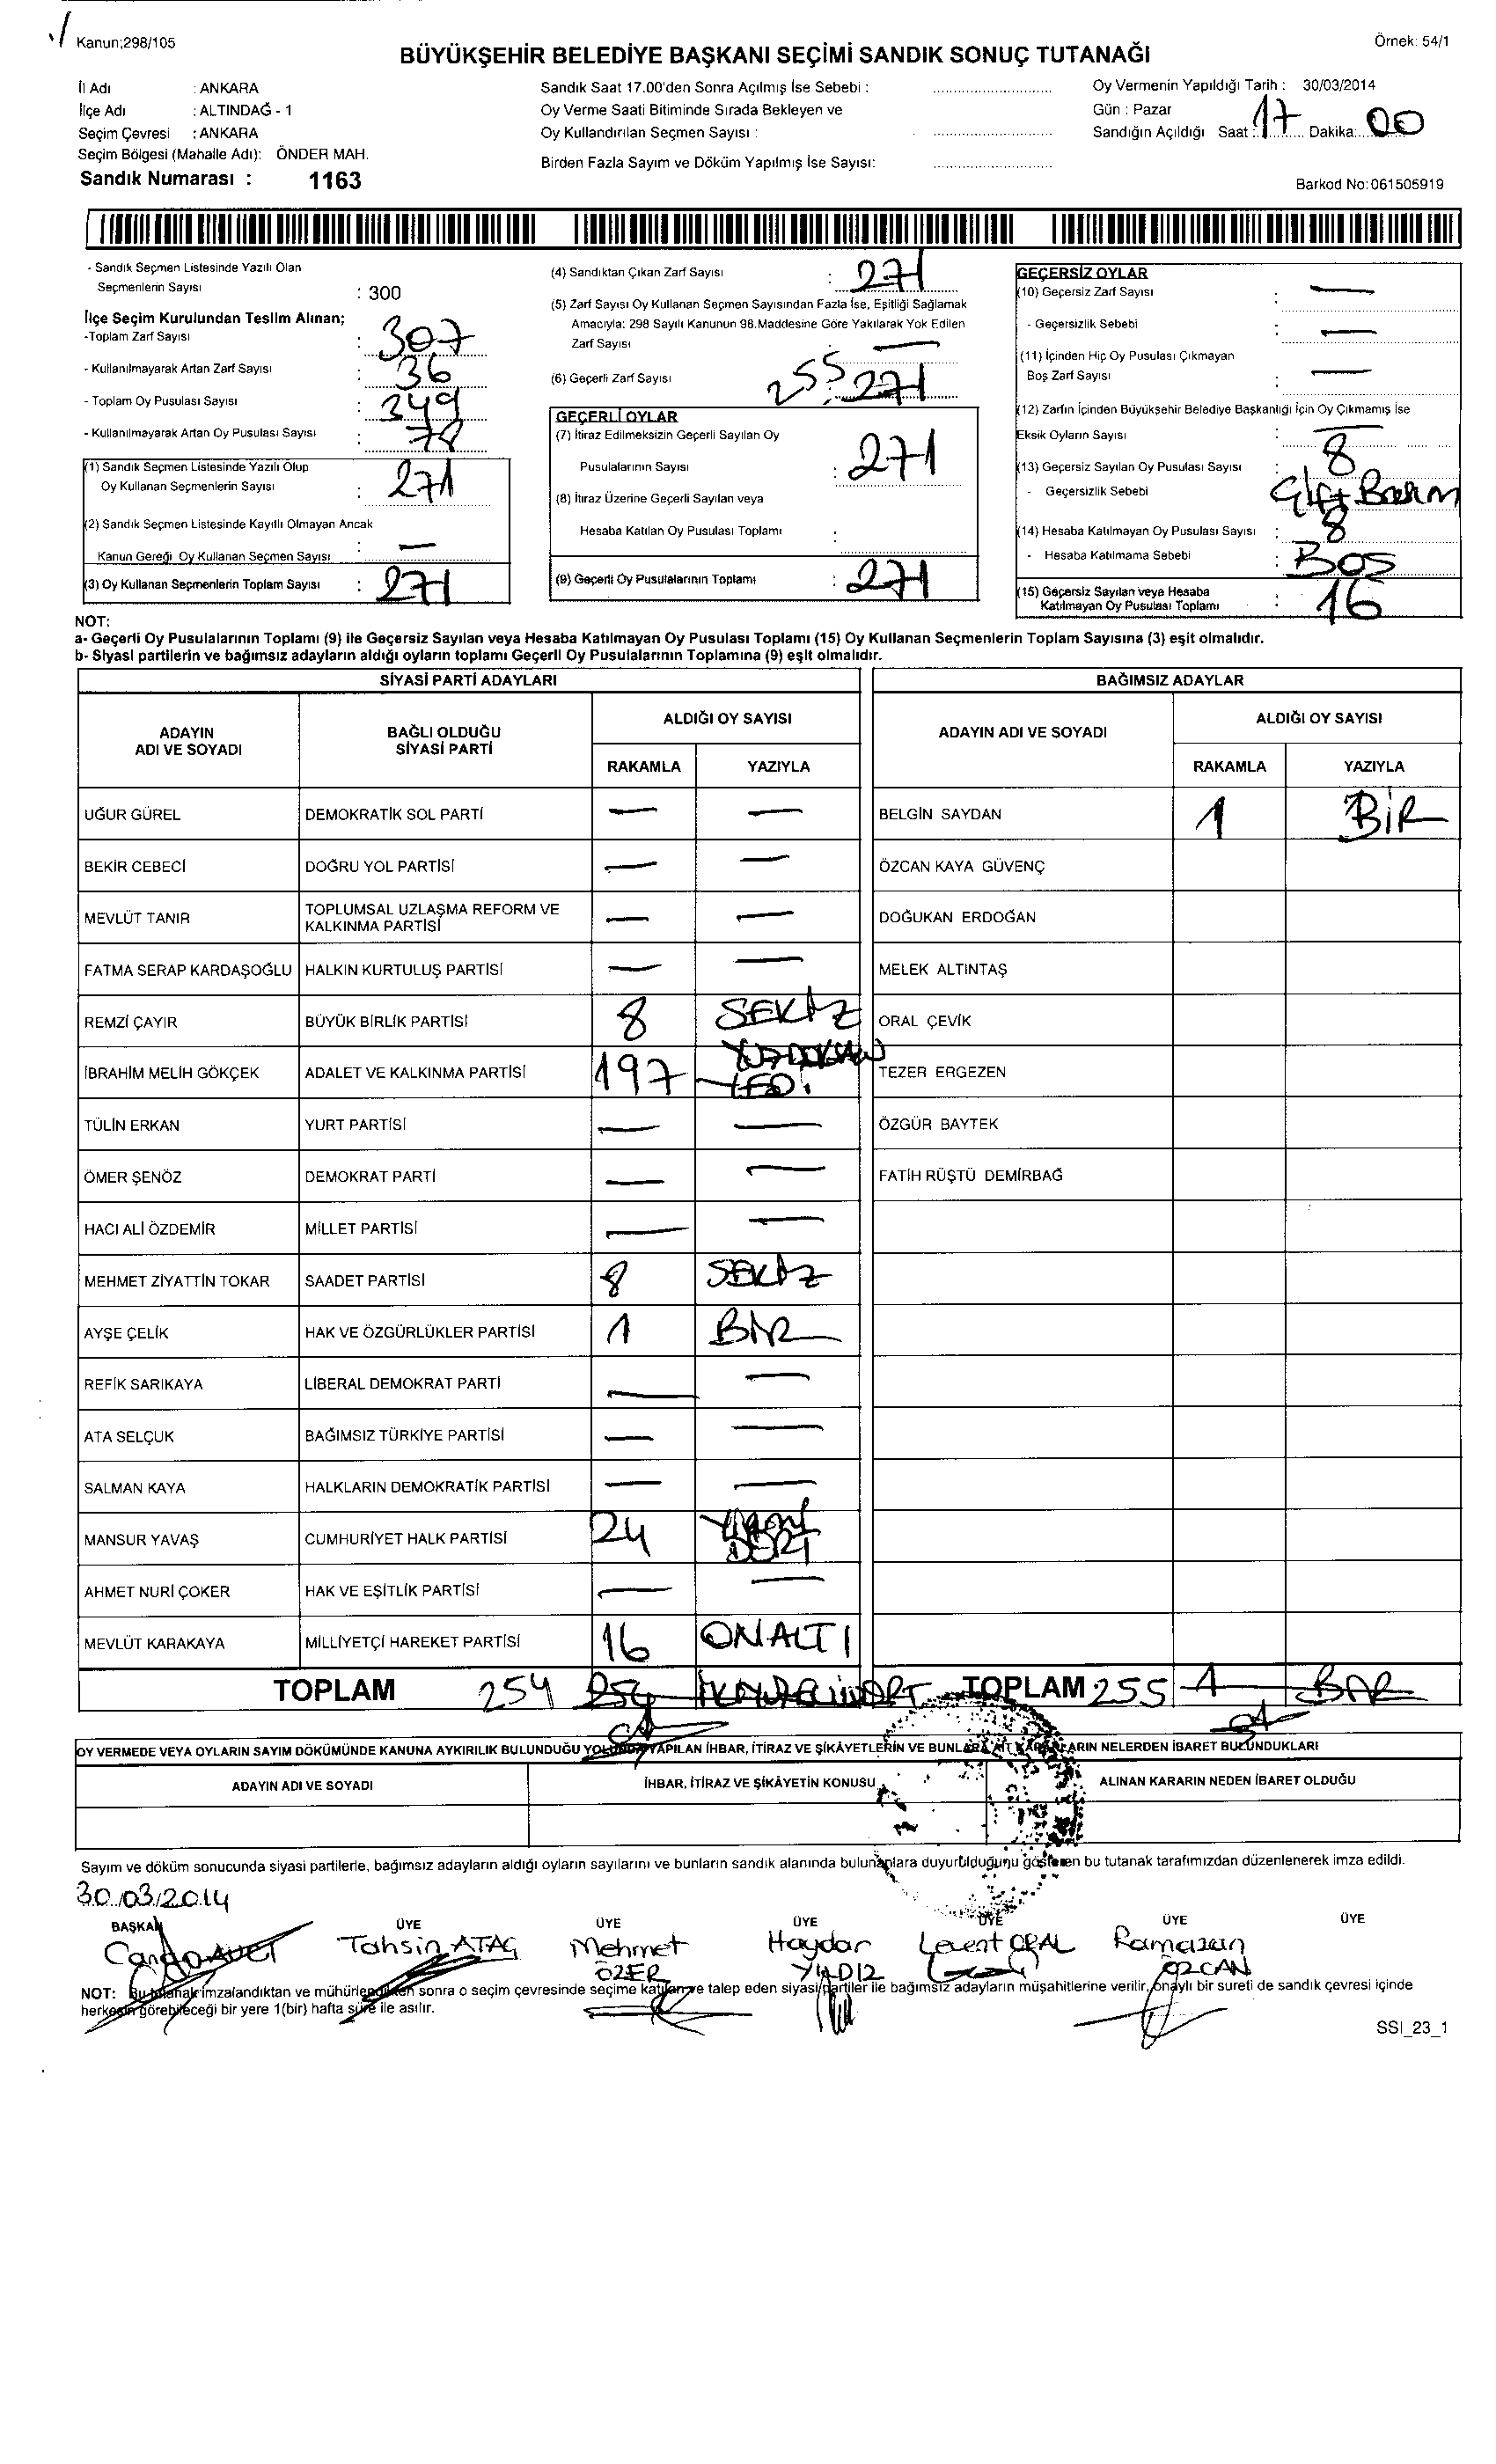 Kanun;298/105
Örnek: 54/1
BÜYÜKŞEHİR BELEDİYE BAŞKANI SEÇİMİ SANDIK SONUÇ TUTANAĞI
İl Adı : ANKARA
İlçe Adı : ALTINDAĞ - 1
Seçim Çevresi : ANKARA
Seçim Bölgesi (Mahalle Adı): ÖNDER MAH.
Sandık Numarası : 1163
Sandık Saat 17.00'den Sonra Açılmış İse Sebebi :
Oy Verme Saati Bitiminde Sırada Bekleyen ve
Oy Kullandırılan Seçmen Sayısı :
Birden Fazla Sayım ve Döküm Yapılmış İse Sayısı:
Oy Vermenin Yapıldığı Tarih : 30/03/2014
Gün : Pazar
Sandığın Açıldığı Saat : 17 Dakika: 00
Barkod No:061505919
- Sandık Seçmen Listesinde Yazılı Olan
Seçmenlerin Sayısı : 300
İlçe Seçim Kurulundan Teslim Alınan;
-Toplam Zarf Sayısı : 307
- Kullanılmayarak Artan Zarf Sayısı : 36
- Toplam Oy Pusulası Sayısı : 349
- Kullanılmayarak Artan Oy Pusulası Sayısı : 78
(1) Sandık Seçmen Listesinde Yazılı Olup
Oy Kullanan Seçmenlerin Sayısı : 271
(2) Sandık Seçmen Listesinde Kayıtlı Olmayan Ancak
Kanun Gereği Oy Kullanan Seçmen Sayısı : —
(3) Oy Kullanan Seçmenlerin Toplam Sayısı : 271
(4) Sandıktan Çıkan Zarf Sayısı : 271
(5) Zarf Sayısı Oy Kullanan Seçmen Sayısından Fazla İse, Eşitliği Sağlamak
Amacıyla; 298 Sayılı Kanunun 98.Maddesine Göre Yakılarak Yok Edilen
Zarf Sayısı : —
(6) Geçerli Zarf Sayısı : 255 271
GEÇERLİ OYLAR
(7) İtiraz Edilmeksizin Geçerli Sayılan Oy
Pusulalarının Sayısı : 271
(8) İtiraz Üzerine Geçerli Sayılan veya
Hesaba Katılan Oy Pusulası Toplamı :
(9) Geçerli Oy Pusulalarının Toplamı : 271
GEÇERSİZ OYLAR
(10) Geçersiz Zarf Sayısı : —
- Geçersizlik Sebebi : —
(11) İçinden Hiç Oy Pusulası Çıkmayan
Boş Zarf Sayısı : —
(12) Zarfın İçinden Büyükşehir Belediye Başkanlığı İçin Oy Çıkmamış İse
Eksik Oyların Sayısı : —
(13) Geçersiz Sayılan Oy Pusulası Sayısı : 8
- Geçersizlik Sebebi
(14) Hesaba Katılmayan Oy Pusulası Sayısı : 8
- Hesaba Katılmama Sebebi : BOS
(15) Geçersiz Sayılan veya Hesaba
Katılmayan Oy Pusulası Toplamı : 16
NOT:
a- Geçerli Oy Pusulalarının Toplamı (9) ile Geçersiz Sayılan veya Hesaba Katılmayan Oy Pusulası Toplamı (15) Oy Kullanan Seçmenlerin Toplam Sayısına (3) eşit olmalıdır.
b- Siyasi partilerin ve bağımsız adayların aldığı oyların toplamı Geçerli Oy Pusulalarının Toplamına (9) eşit olmalıdır.
SİYASİ PARTİ ADAYLARI
ADAYIN ADI VE SOYADI
BAĞLI OLDUĞU SİYASİ PARTİ
ALDIĞI OY SAYISI
RAKAMLA YAZIYLA
UĞUR GÜREL DEMOKRATİK SOL PARTİ — —
BEKİR CEBECİ DOĞRU YOL PARTİSİ — —
MEVLÜT TANIR TOPLUMSAL UZLAŞMA REFORM VE KALKINMA PARTİSİ — —
FATMA SERAP KARDAŞOĞLU HALKIN KURTULUŞ PARTİSİ — —
REMZİ ÇAYIR BÜYÜK BİRLİK PARTİSİ 8 SEKİZ
İBRAHİM MELİH GÖKÇEK ADALET VE KALKINMA PARTİSİ 197 YÜZDOKSAN YEDİ
TÜLİN ERKAN YURT PARTİSİ — —
ÖMER ŞENÖZ DEMOKRAT PARTİ — —
HACI ALİ ÖZDEMİR MİLLET PARTİSİ — —
MEHMET ZİYATTİN TOKAR SAADET PARTİSİ 8 SEKİZ
AYŞE ÇELİK HAK VE ÖZGÜRLÜKLER PARTİSİ 1 BİR
REFİK SARIKAYA LİBERAL DEMOKRAT PARTİ — —
ATA SELÇUK BAĞIMSIZ TÜRKİYE PARTİSİ — —
SALMAN KAYA HALKLARIN DEMOKRATİK PARTİSİ — —
MANSUR YAVAŞ CUMHURİYET HALK PARTİSİ 24 YİRMİ DÖRT
AHMET NURİ ÇOKER HAK VE EŞİTLİK PARTİSİ — —
MEVLÜT KARAKAYA MİLLİYETÇİ HAREKET PARTİSİ 16 ONALTI
TOPLAM 254 254
BAĞIMSIZ ADAYLAR
ADAYIN ADI VE SOYADI
ALDIĞI OY SAYISI
RAKAMLA YAZIYLA
BELGİN SAYDAN 1 BİR
ÖZCAN KAYA GÜVENÇ
DOĞUKAN ERDOĞAN
MELEK ALTINTAŞ
ORAL ÇEVİK
TEZER ERGEZEN
ÖZGÜR BAYTEK
FATİH RÜŞTÜ DEMİRBAĞ
TOPLAM 255 1 BİR
OY VERMEDE VEYA OYLARIN SAYIM DÖKÜMÜNDE KANUNA AYKIRILIK BULUNDUĞU YOLUNDA YAPILAN İHBAR, İTİRAZ VE ŞİKÂYETLERİN VE BUNLARA AİT KARARLARIN NELERDEN İBARET BULUNDUKLARI
ADAYIN ADI VE SOYADI
İHBAR, İTİRAZ VE ŞİKÂYETİN KONUSU
ALINAN KARARIN NEDEN İBARET OLDUĞU
Sayım ve döküm sonucunda siyasi partilerle, bağımsız adayların aldığı oyların sayılarını ve bunların sandık alanında bulunanlara duyurulduğunu gösteren bu tutanak tarafımızdan düzenlenerek imza edildi.
30/03/2014
BAŞKAN ÜYE ÜYE ÜYE ÜYE ÜYE ÜYE
Tahsin ATAÇ
Mehmet ÖZER
Haydar YILDIZ
Levent ORAL
Ramazan ÖZCAN
NOT: Bu tutanak imzalandıktan ve mühürlendikten sonra o seçim çevresinde seçime katılan ve talep eden siyasi partiler ile bağımsız adayların müşahitlerine verilir, onaylı bir sureti de sandık çevresi içinde
herkesin görebileceği bir yere 1(bir) hafta süre ile asılır.
SSI_23_1